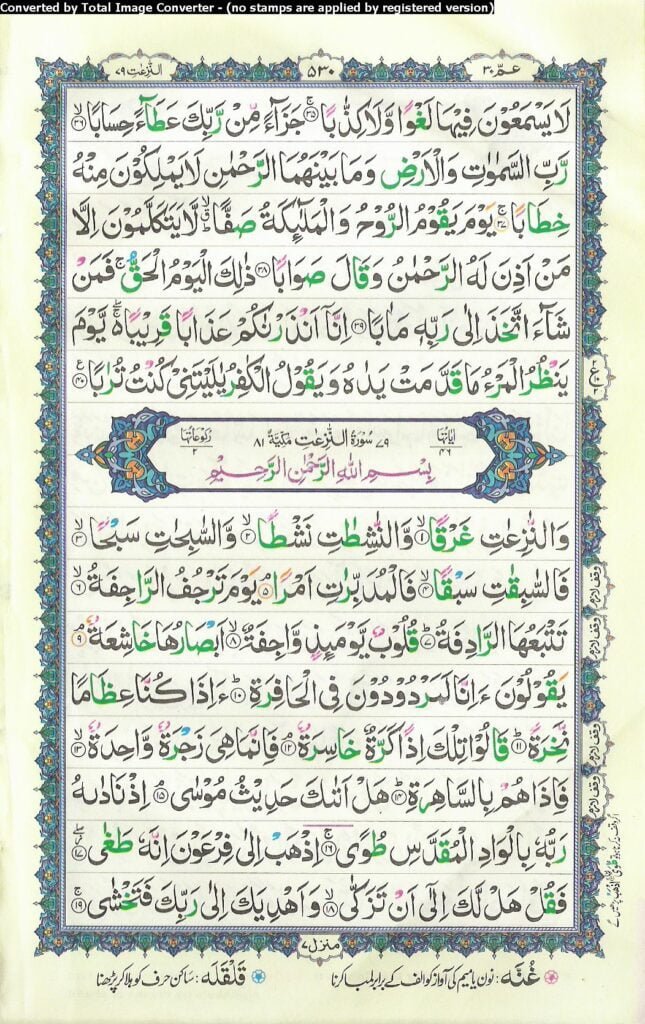 Converted by Total Image Converter - (no stamps are applied by registered version)
عمّ ٣٠
٥٣٠
النّٰزعٰت ٧٩
لَا یَسْمَعُوْنَ فِیْهَا لَغْوًا وَّ لَا كِذّٰبًا ۚ﴿۳۵﴾ جَزَآءً مِّنْ رَّبِّكَ عَطَآءً حِسَابًا ۙ﴿۳۶﴾
رَّبِّ السَّمٰوٰتِ وَ الْاَرْضِ وَ مَا بَیْنَهُمَا الرَّحْمٰنِ لَا یَمْلِكُوْنَ مِنْهُ
خِطَابًا ۚ﴿۳۷﴾ یَوْمَ یَقُوْمُ الرُّوْحُ وَ الْمَلٰٓىِٕكَةُ صَفًّا ۙۗؕ لَّا یَتَكَلَّمُوْنَ اِلَّا
مَنْ اَذِنَ لَهُ الرَّحْمٰنُ وَ قَالَ صَوَابًا ﴿۳۸﴾ ذٰلِكَ الْیَوْمُ الْحَقُّ ۚ فَمَنْ
شَآءَ اتَّخَذَ اِلٰى رَبِّهٖ مَاٰبًا ﴿۳۹﴾ اِنَّاۤ اَنْذَرْنٰكُمْ عَذَابًا قَرِیْبًا ۖۚ۬ یَّوْمَ
یَنْظُرُ الْمَرْءُ مَا قَدَّمَتْ یَدٰهُ وَ یَقُوْلُ الْكٰفِرُ یٰلَیْتَنِیْ كُنْتُ تُرٰبًا ﴿۴۰﴾
اٰیَاتُهَا ٤٦
٧٩ سُوْرَةُ النّٰزِعٰتِ مَكِّیَّةٌ ٨١
رُكُوْعَاتُهَا ٢
بِسْمِ اللّٰهِ الرَّحْمٰنِ الرَّحِیْمِ
وَ النّٰزِعٰتِ غَرْقًا ۙ﴿۱﴾ وَّ النّٰشِطٰتِ نَشْطًا ۙ﴿۲﴾ وَّ السّٰبِحٰتِ سَبْحًا ۙ﴿۳﴾
فَالسّٰبِقٰتِ سَبْقًا ۙ﴿۴﴾ فَالْمُدَبِّرٰتِ اَمْرًا ۘ﴿۵﴾ یَوْمَ تَرْجُفُ الرَّاجِفَةُ ۙ﴿۶﴾
تَتْبَعُهَا الرَّادِفَةُ ؕ﴿۷﴾ قُلُوْبٌ یَّوْمَىِٕذٍ وَّاجِفَةٌ ۙ﴿۸﴾ اَبْصَارُهَا خَاشِعَةٌ ۘ﴿۹﴾
یَقُوْلُوْنَ ءَاِنَّا لَمَرْدُوْدُوْنَ فِی الْحَافِرَةِ ؕ﴿۱۰﴾ ءَاِذَا كُنَّا عِظَامًا
نَّخِرَةً ؕ﴿۱۱﴾ قَالُوْا تِلْكَ اِذًا كَرَّةٌ خَاسِرَةٌ ۘ﴿۱۲﴾ فَاِنَّمَا هِیَ زَجْرَةٌ وَّاحِدَةٌ ۙ﴿۱۳﴾
فَاِذَا هُمْ بِالسَّاهِرَةِ ؕ﴿۱۴﴾ هَلْ اَتٰىكَ حَدِیْثُ مُوْسٰى ۘ﴿۱۵﴾ اِذْ نَادٰىهُ
رَبُّهٗ بِالْوَادِ الْمُقَدَّسِ طُوًى ۚ﴿۱۶﴾ اِذْهَبْ اِلٰى فِرْعَوْنَ اِنَّهٗ طَغٰى ۖ﴿۱۷﴾
فَقُلْ هَلْ لَّكَ اِلٰۤى اَنْ تَزَكّٰى ۙ﴿۱۸﴾ وَ اَهْدِیَكَ اِلٰى رَبِّكَ فَتَخْشٰى ۚ﴿۱۹﴾
وقف لازم
وقف لازم
وقف لازم
وقف لازم
منزل ٧
غُنَّه : نون یا میم کی آواز کو الف کے برابر لمبا کرنا
قَلْقَلَه : ساکن حرف کو ہلا کر پڑھنا